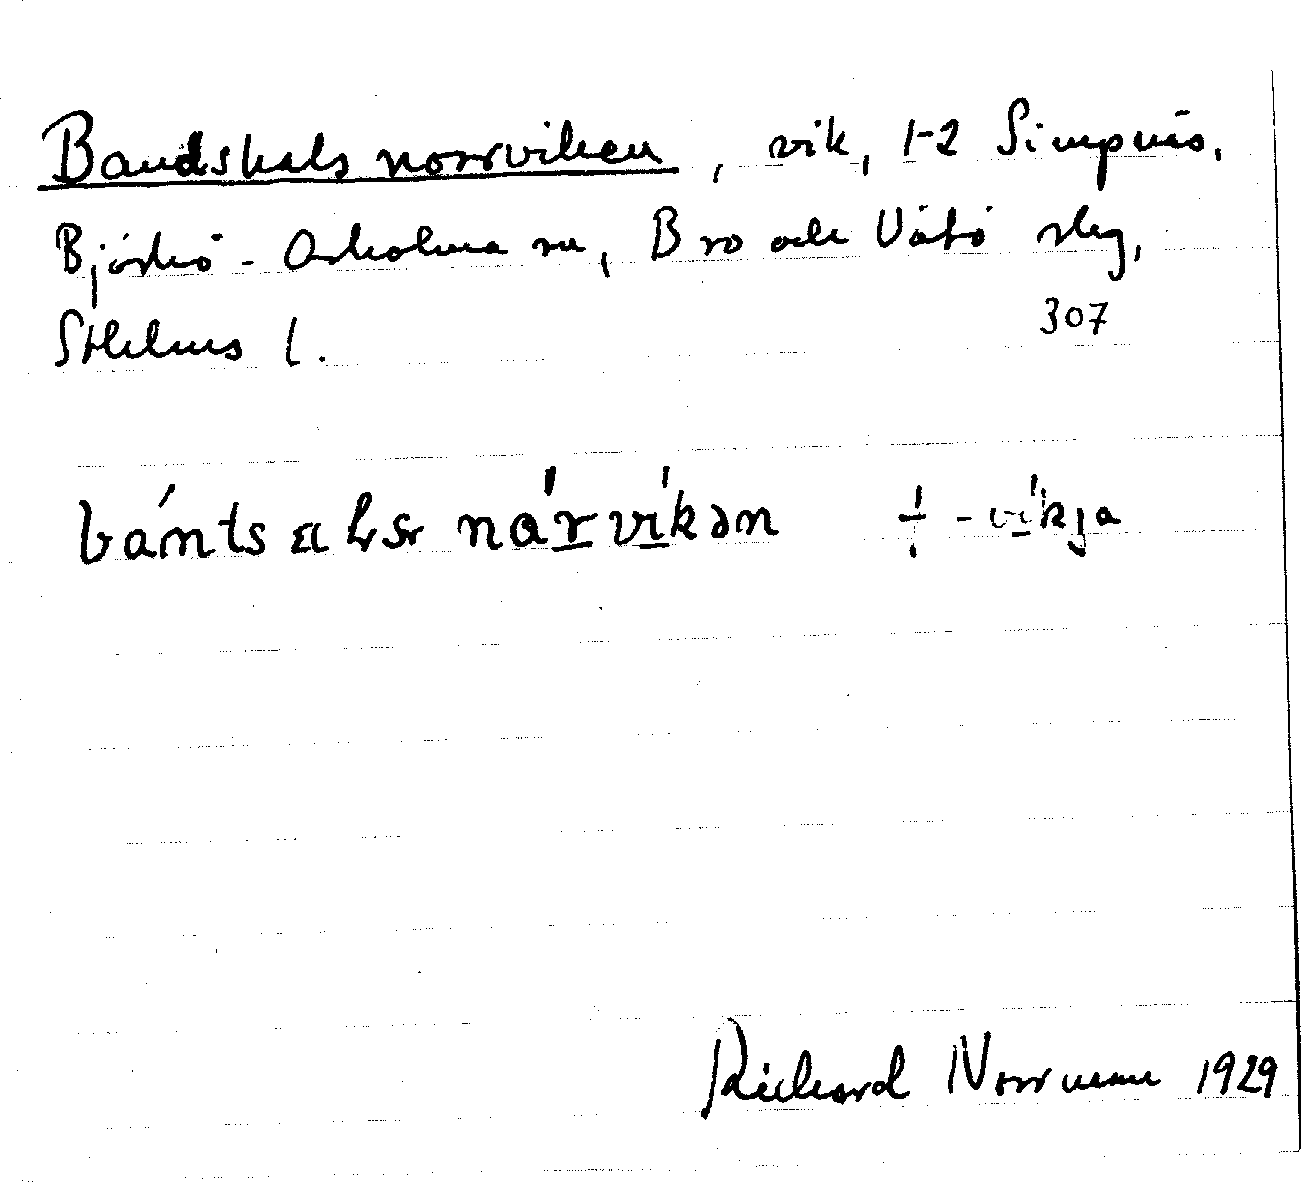 Bandskals norrviken, vik, 1-2 Simpnäs,
Björkö-Arholma sn, Bro och Vätö skg,
Sthlms l.
307
nárvíkən ⸓ -víkja
Richard Norrman 1929